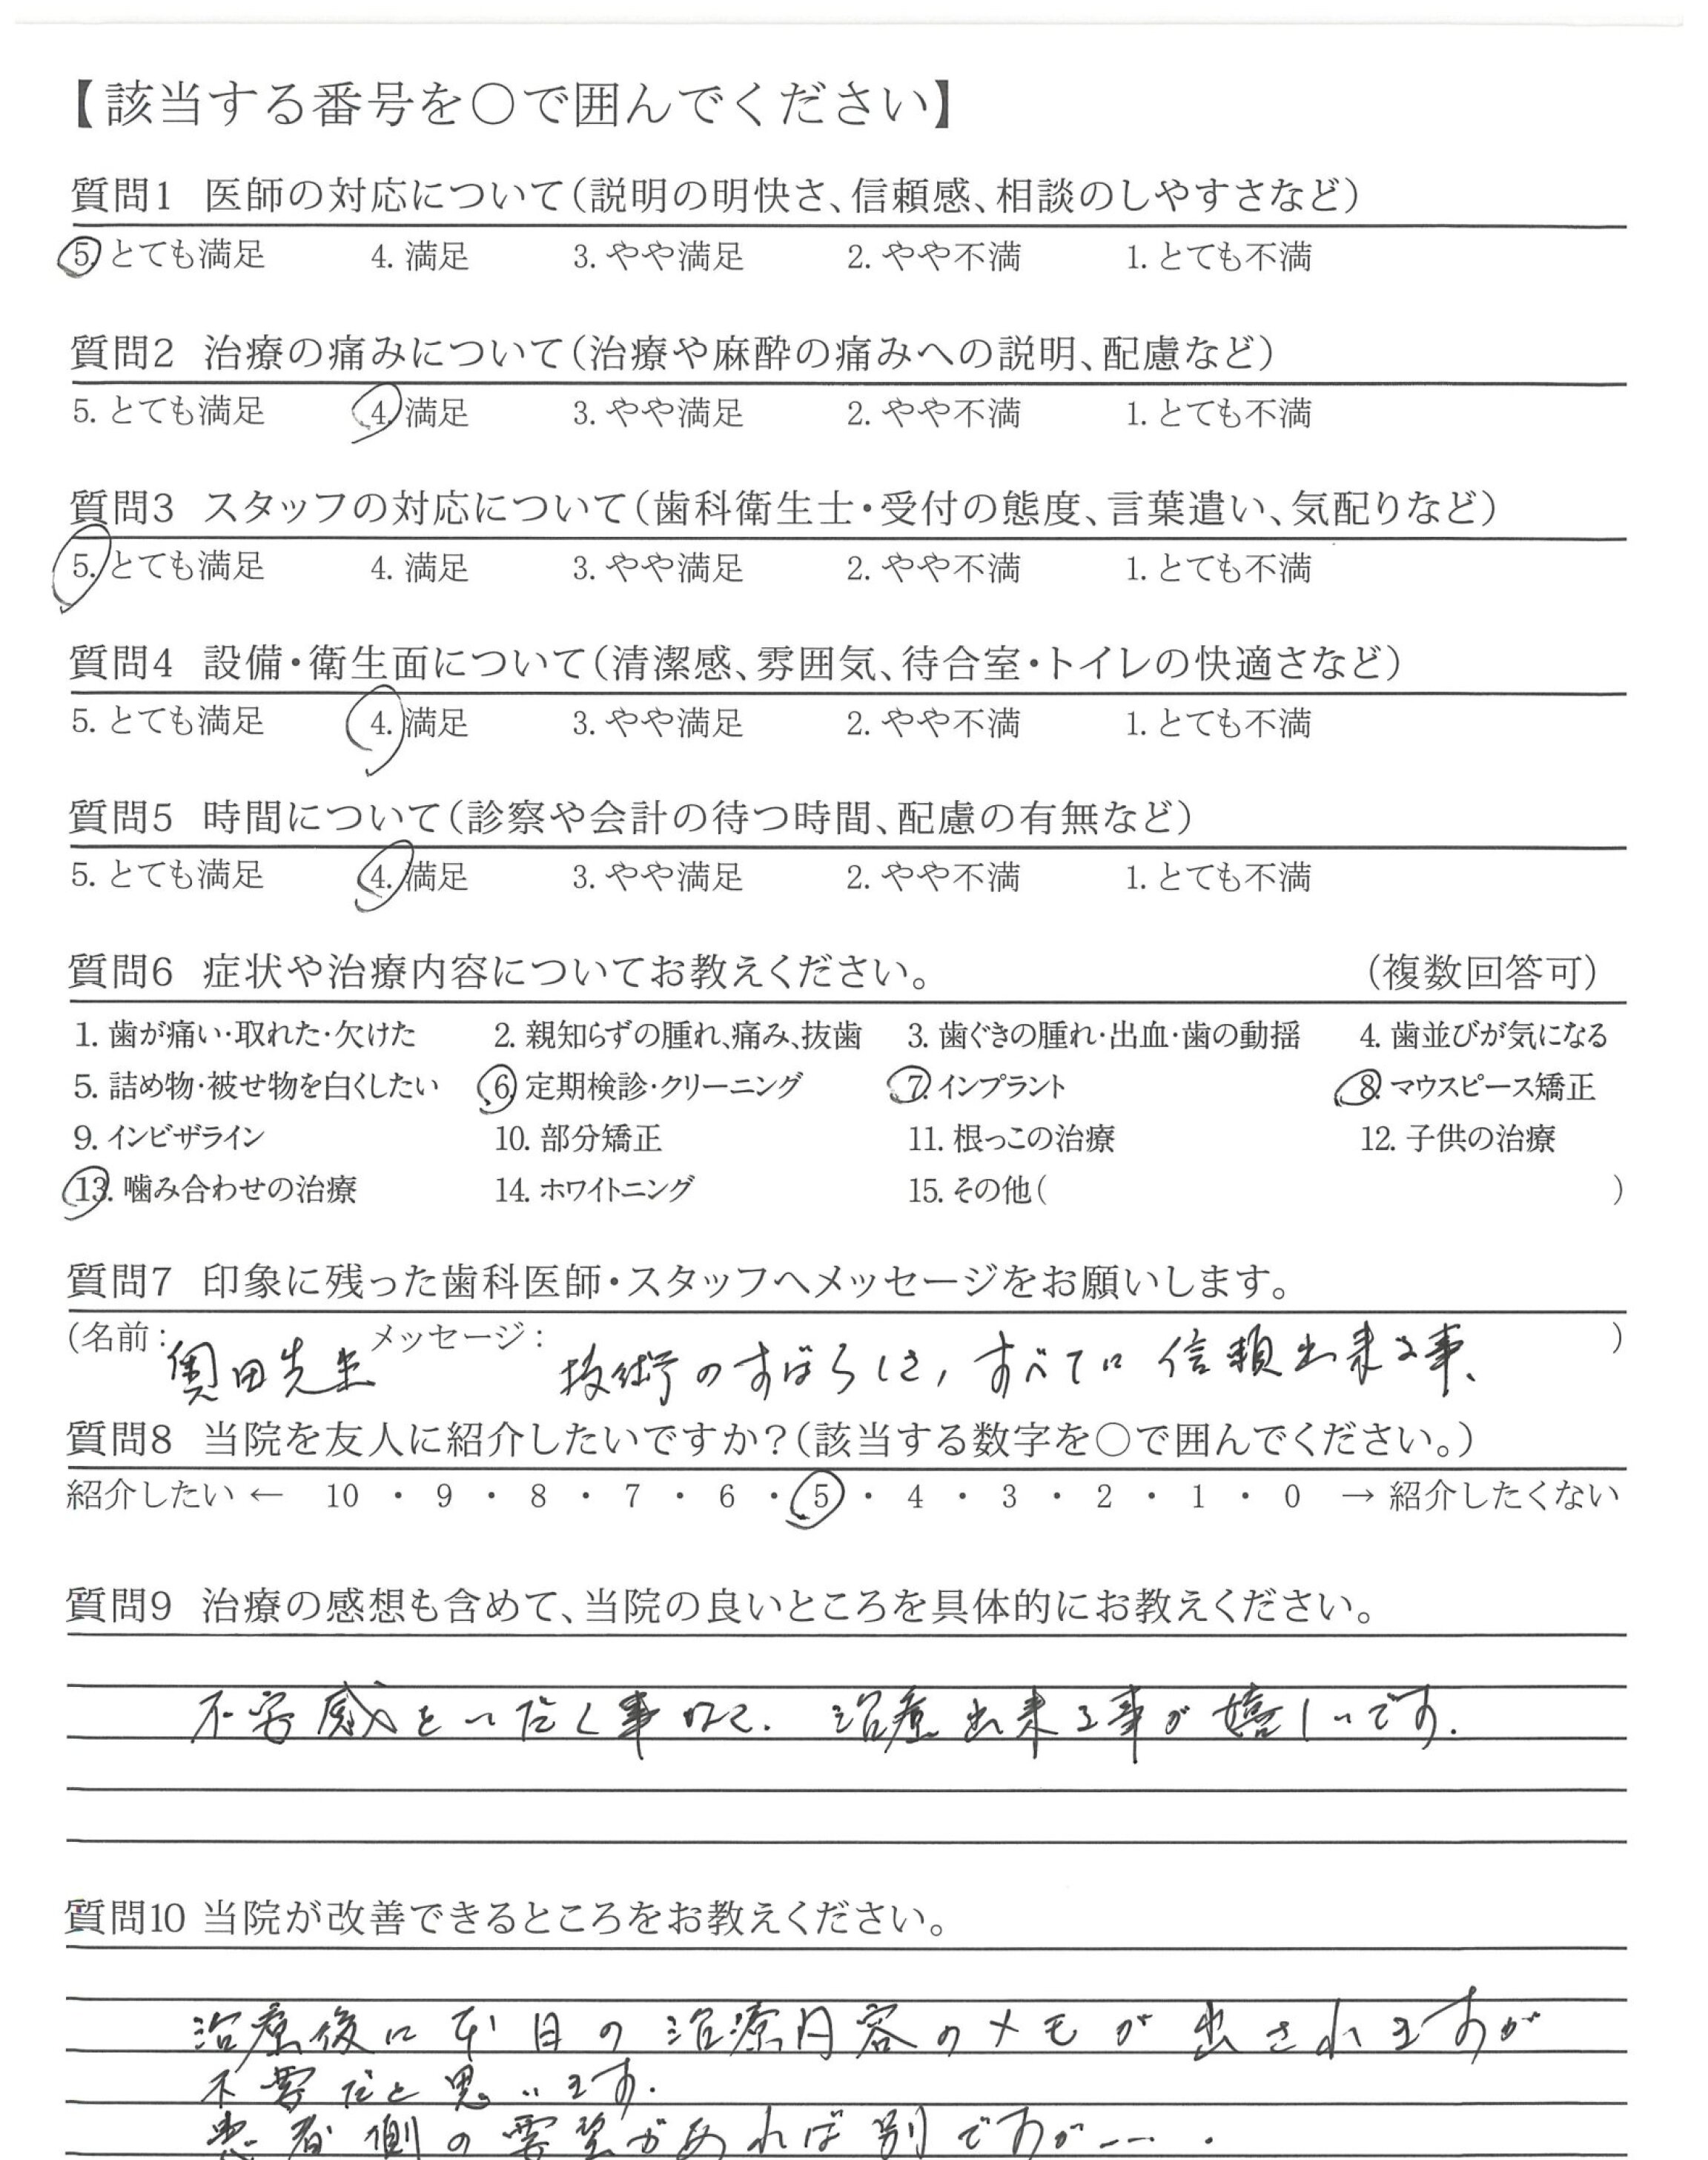 【該当する番号を○で囲んでください】
質問1 医師の対応について(説明の明快さ、信頼感、相談のしやすさなど)
5. とても満足 4. 満足 3. やや満足 2. やや不満 1. とても不満
質問2 治療の痛みについて(治療や麻酔の痛みへの説明、配慮など)
5. とても満足 4. 満足 3. やや満足 2. やや不満 1. とても不満
質問3 スタッフの対応について(歯科衛生士・受付の態度、言葉遣い、気配りなど)
5. とても満足 4. 満足 3. やや満足 2. やや不満 1. とても不満
質問4 設備・衛生面について(清潔感、雰囲気、待合室・トイレの快適さなど)
5. とても満足 4. 満足 3. やや満足 2. やや不満 1. とても不満
質問5 時間について(診察や会計の待つ時間、配慮の有無など)
5. とても満足 4. 満足 3. やや満足 2. やや不満 1. とても不満
質問6 症状や治療内容についてお教えください。 (複数回答可)
1. 歯が痛い・取れた・欠けた 2. 親知らずの腫れ、痛み、抜歯 3. 歯ぐきの腫れ・出血・歯の動揺 4. 歯並びが気になる
5. 詰め物・被せ物を白くしたい 6. 定期検診・クリーニング 7. インプラント 8. マウスピース矯正
9. インビザライン 10. 部分矯正 11. 根っこの治療 12. 子供の治療
13. 噛み合わせの治療 14. ホワイトニング 15. その他( )
質問7 印象に残った歯科医師・スタッフへメッセージをお願いします。
(名前: 奥田先生 メッセージ: 技術のすばらしさ, すべてに信頼出来る事、 )
質問8 当院を友人に紹介したいですか?(該当する数字を○で囲んでください。)
紹介したい ← 10 ・ 9 ・ 8 ・ 7 ・ 6 ・ 5 ・ 4 ・ 3 ・ 2 ・ 1 ・ 0 → 紹介したくない
質問9 治療の感想も含めて、当院の良いところを具体的にお教えください。
不安感をいだく事なく. 治療出来る事が嬉しいです.
質問10 当院が改善できるところをお教えください。
治療後に本日の治療内容のメモが出されますが
不要だと思います.
患者側の要望があれば別ですが---.